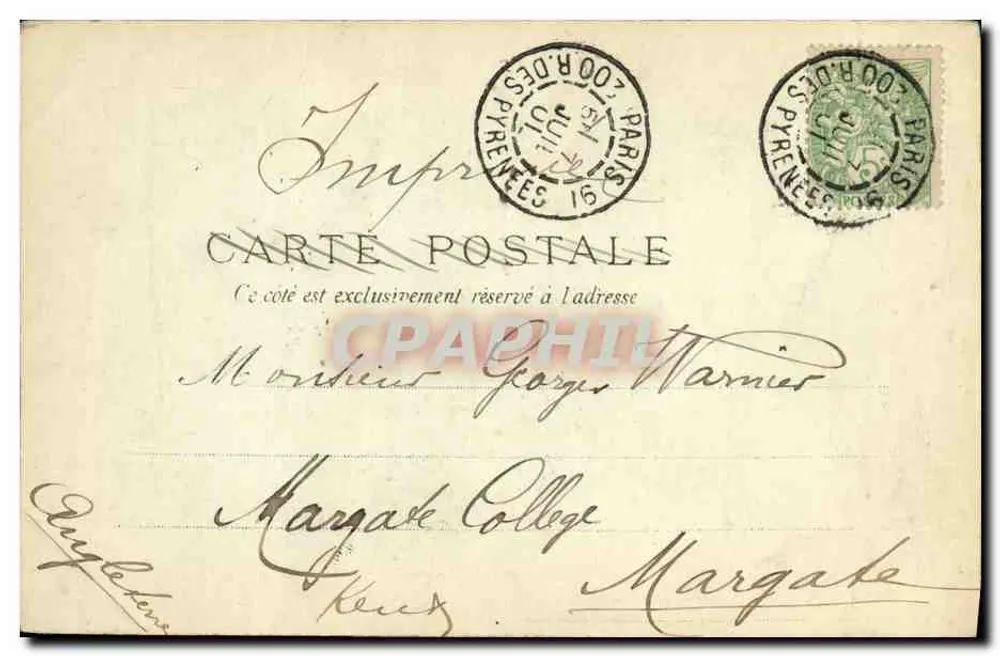 PARIS 16 200 R. DES PYRENEES
JUIL 01
PARIS 16 200 R. DES PYRENEES
JUIL 01
5
POSTES
Imprimé
CARTE POSTALE
Ce côté est exclusivement réservé à l'adresse
CPAPHIL
Monsieur Georges Warnier
Margate College
Margate
Kent
Angleterre